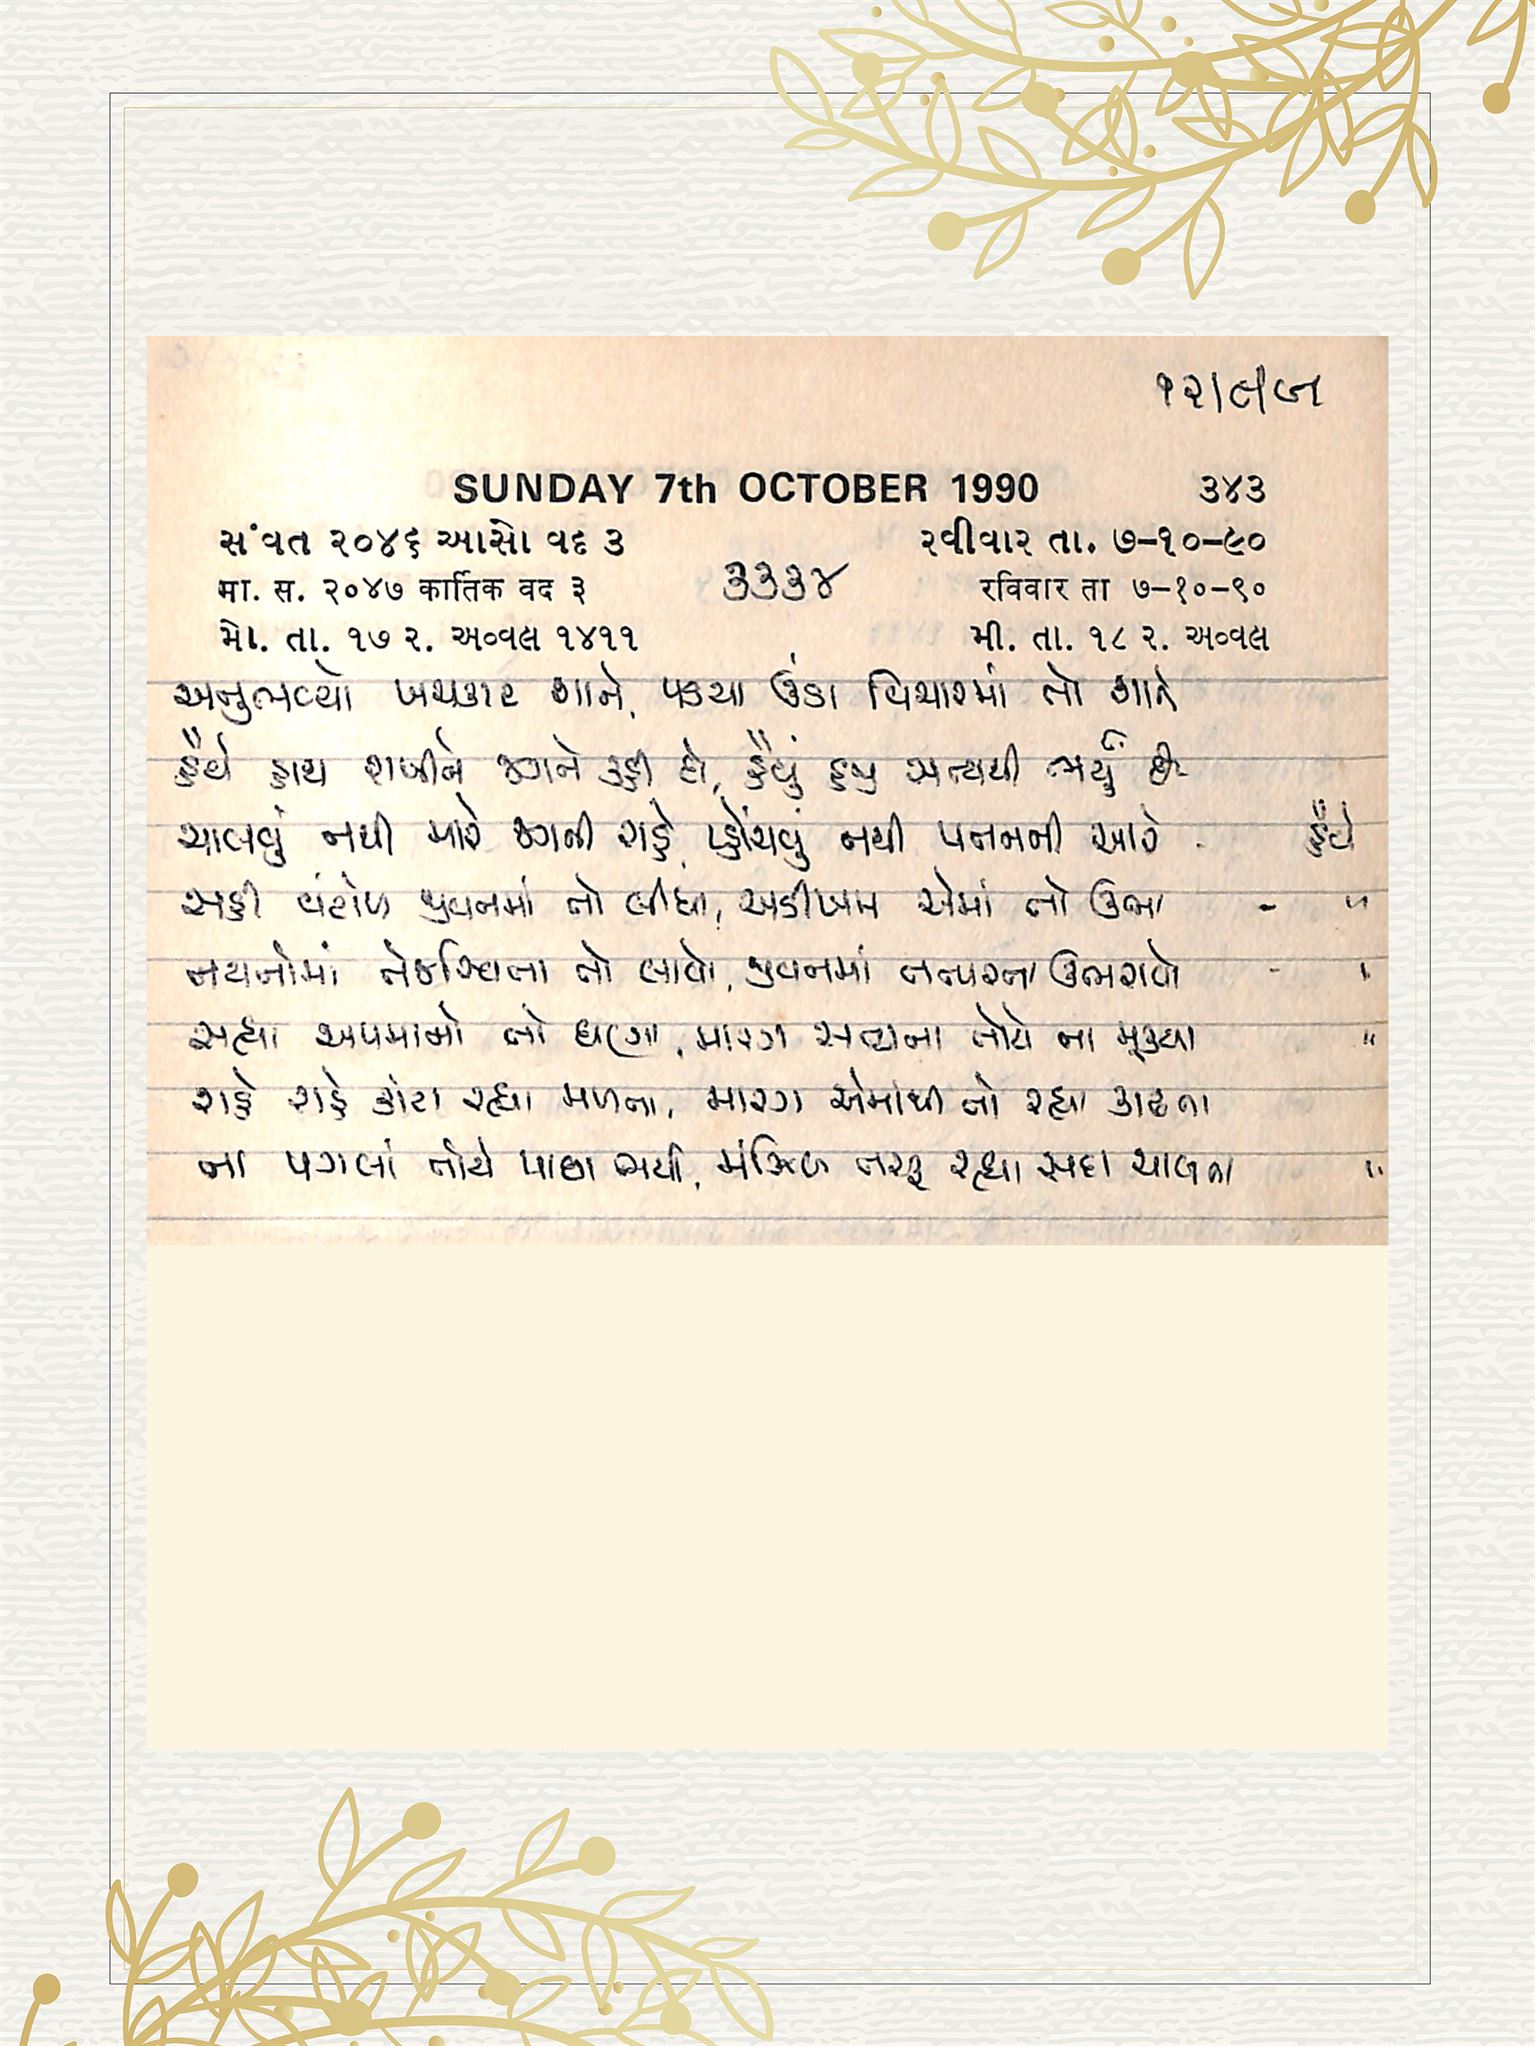 SUNDAY 7th OCTOBER 1990 ૩૪૩
સંવત ૨૦૪૬ આસો વદ ૩ રવીવાર તા. ૭–૧૦–૯૦
मा. स. २०४७ कार्तिक वद ३ ३३३४ रविवार ता ७–१०–९०
મો. તા. ૧૭ ર. અવ્વલ ૧૪૧૧ મી. તા. ૧૮ ર. અવ્વલ
અનુભવ્યો ખચકાટ શાને, પડયા ઉંડા વિચારમાં તો શાને
હૈયે હાથ રાખીને જગને કહી દો, હૈયું હજુ સત્યથી ભર્યું છે
ચાલવું નથી મારે જગની રાહે, પ્હોંચવું નથી પતનની આરે - હૈયે
સહી વંટોળ જીવનમાં તો લીધા, અડીખમ એમાં તો ઉભા - "
નયનોમાં તેજસ્વિતા તો લાવો, જીવનમાં તત્પરતા ઉભરાવો - "
સહ્યા અપમાનો તો ઘણા, મારગ સત્યના તોયે ના મૂકયા "
રાહે રાહે કાંટા રહ્યા મળતા, મારગ એમાંથી તો રહ્યા કાઢતા
ના પગલાં તોયે પાછા ભર્યા, મંઝિલ તરફ રહ્યા સદા ચાલતા "